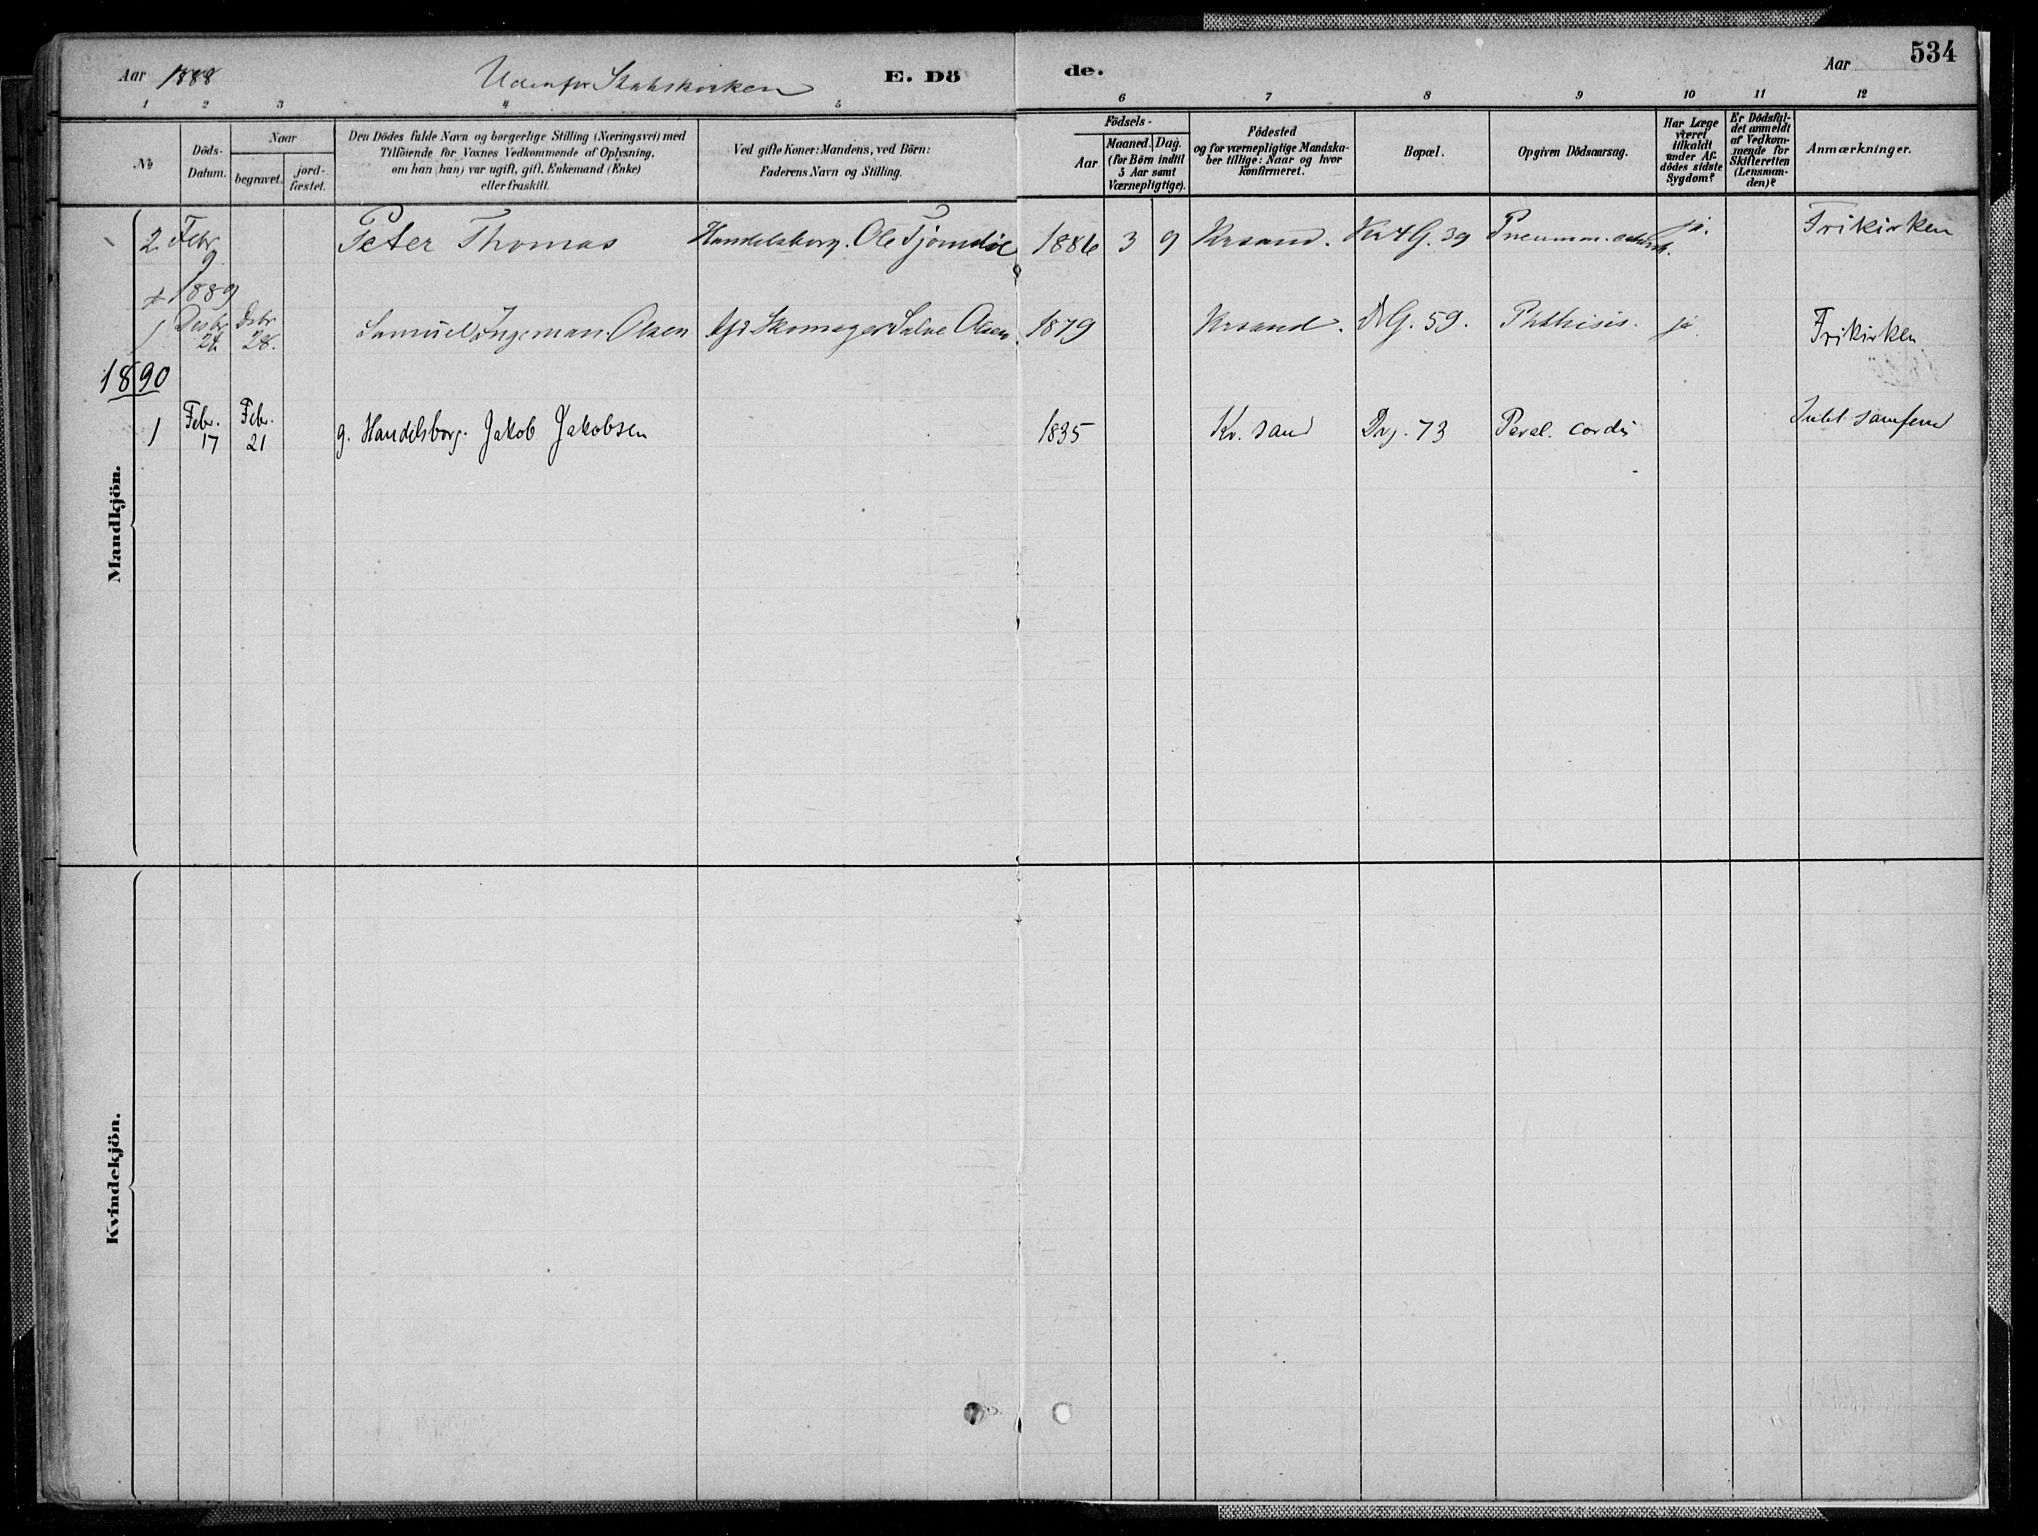 Aar 1888 Udenfor Statskirken E. Dö de. Aar 534
1 2 3 4 5 6 7 8 9 10 11 12
No
Döds-
Datum.
Naar
begravet.
jord-
fæstet.
Den Dödes fulde Navn og borgerlige Stilling (Næringsvei) med
Tilföiende for Voxnes Vedkommende af Oplysning,
om han (hun) var ugift, gift, Enkemand (Enke)
eller fraskilt.
Ved gifte Koner: Mandens, ved Börn:
Faderens Navn og Stilling.
Födsels-
Aar
Maaned. Dag.
(for Börn indtil
5 Aar samt
Værnepligtige).
Födested
og for værnepligtige Mandska-
ber tillige: Naar og hvor
konfirmeret.
Bopæl.
Opgiven Dödsaarsag.
Har Læge
været
tilkaldt
under Af-
dödes sidste
Sygdom?
Er Dödsfal-
det anmeldt
af Vedkom-
mende for
Skifteretten
(Lensman-
den)?
Anmærkninger.
Mandkjön.
2 Febr. 9 Peter Thomas Handelsborg. Ole Tjomdøe 1886 3 9 Krsand. Kr 4 G. 39 Pneumon. ja. Frikirken
1889
1 Desbr 24 Dsbr 28. Samuel Ingeman Olsen Skomager Salve Olsen. 1879 Krsand. Dr G. 59. Phthisis. ja Frikirken
1890
1 Febr. 17 Febr. 21 g. Handelsborg. Jakob Jakobsen 1835 Kr. sand Drg. 73 Paral. cordis samfund
Kvindekjön.